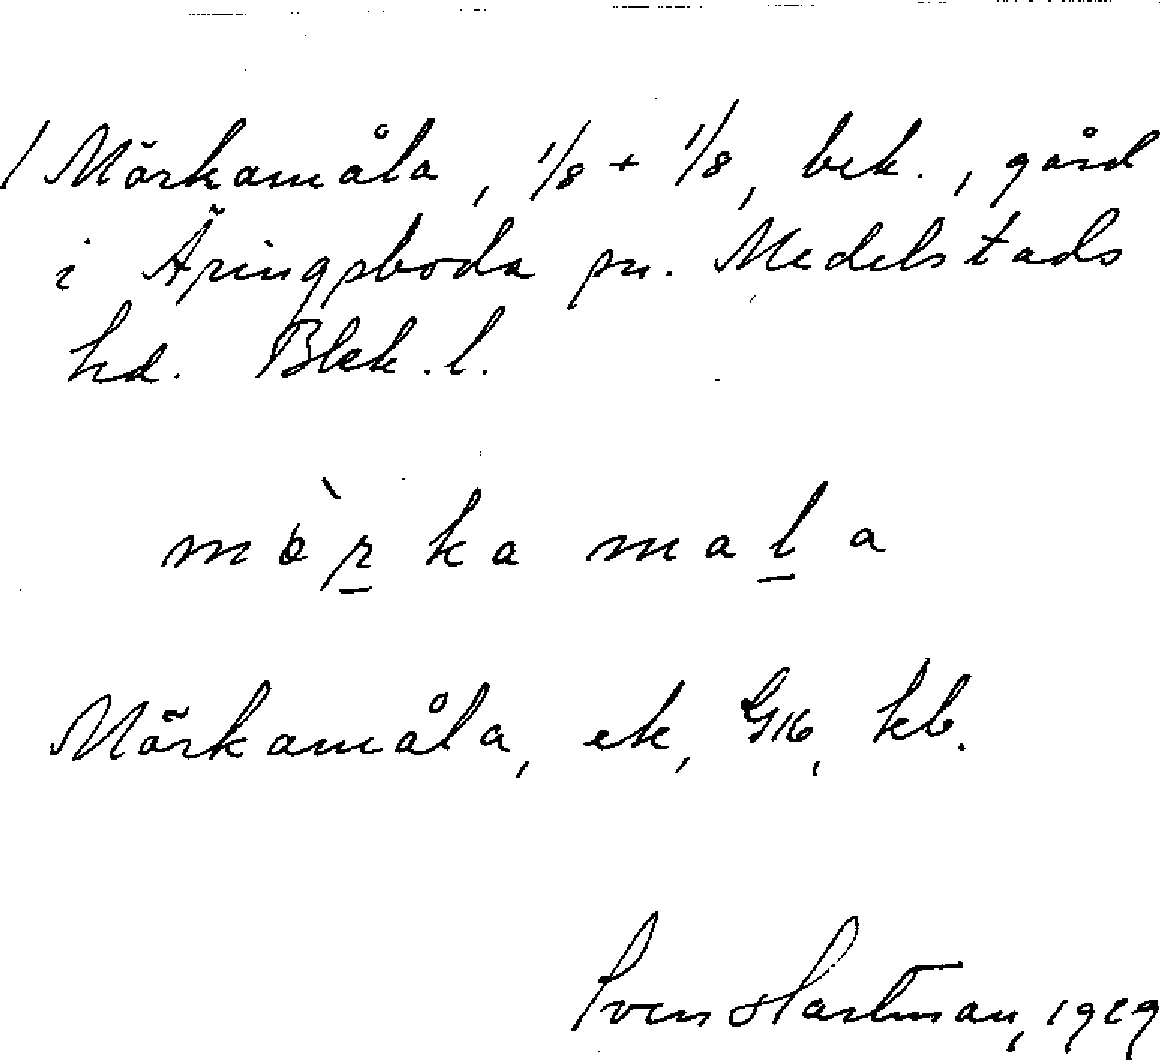 / Mörkamåla, 1/8 + 1/8, bek., gård
i Äringsboda sn. Medelstads
hd. Blek. l.
mòrkamala
Mörkamåla, ek, GK, kb.
Sven Hartman, 1929